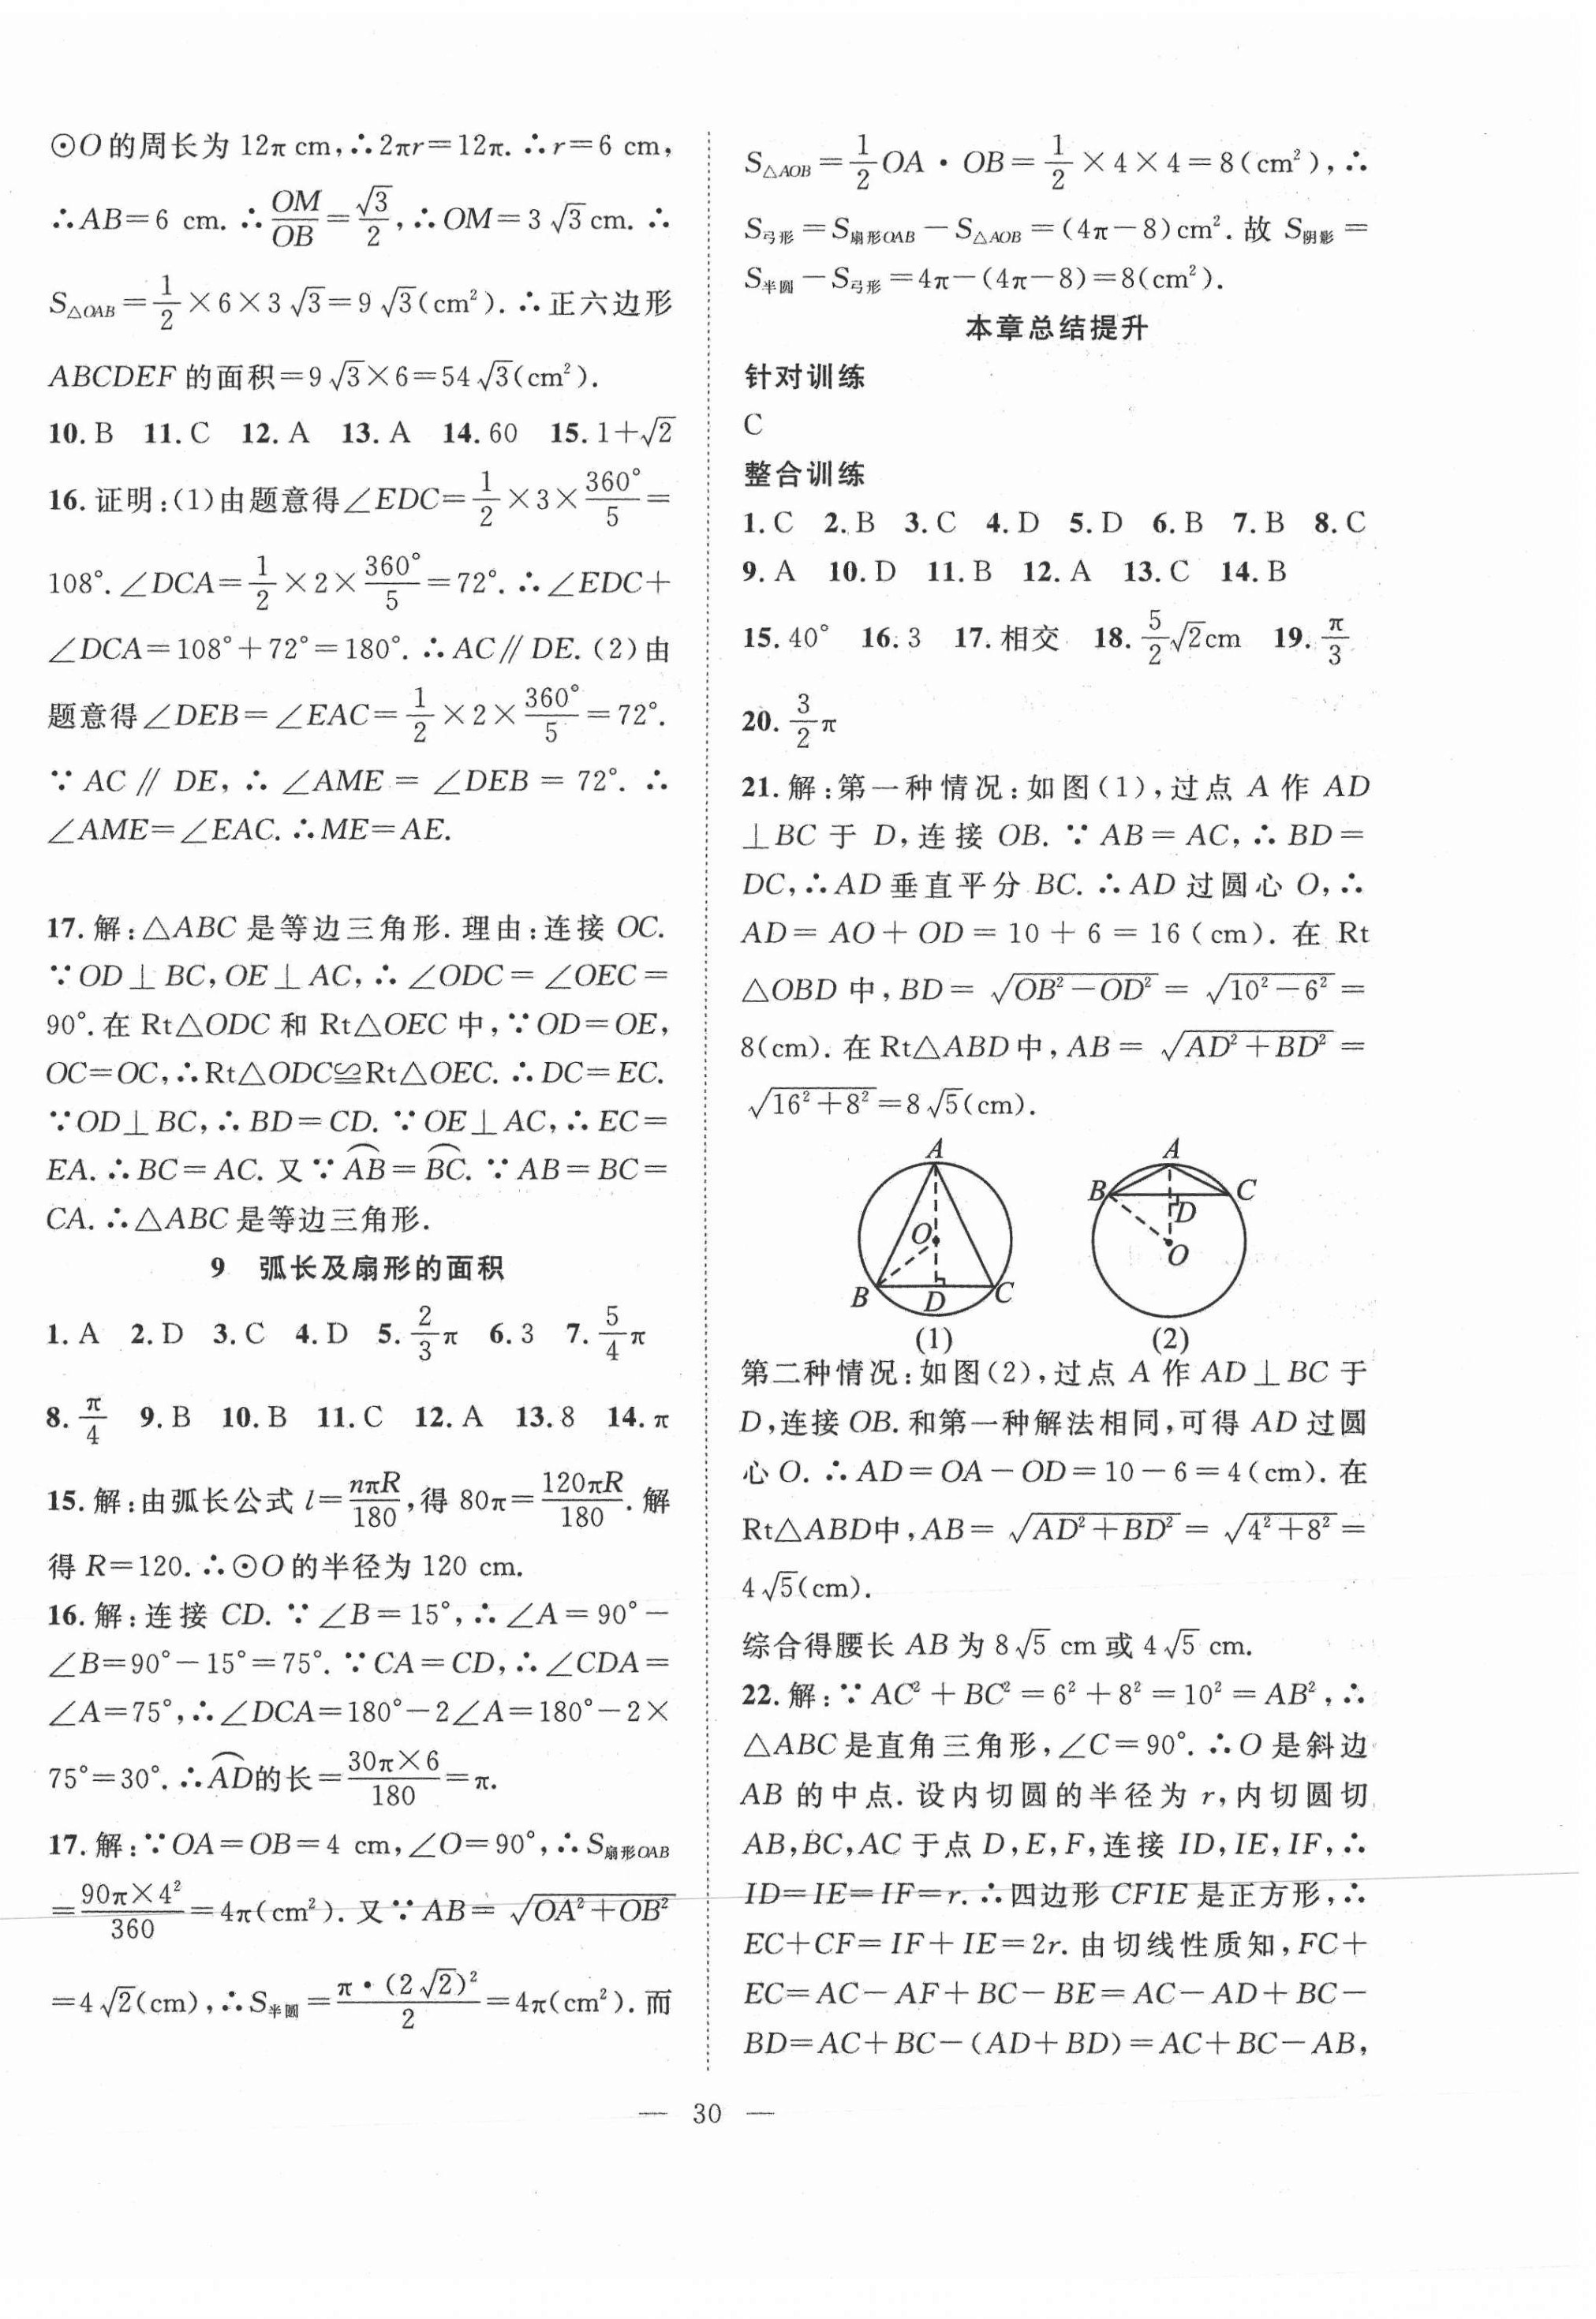 ⊙O的周长为 12π cm,∴2πr=12π. ∴r=6 cm,
∴AB=6 cm. ∴OM/OB=√3/2,∴OM=3√3cm. ∴
S△OAB=1/2×6×3√3=9√3(cm²). ∴正六边形
ABCDEF的面积=9√3×6=54√3(cm²).
10. B 11. C 12. A 13. A 14. 60 15. 1+√2
16. 证明:(1)由题意得∠EDC=1/2×3×360°/5=
108°. ∠DCA=1/2×2×360°/5=72°. ∴∠EDC+
∠DCA=108°+72°=180°. ∴AC∥DE. (2)由
题意得∠DEB=∠EAC=1/2×2×360°/5=72°.
∵AC∥DE, ∴∠AME=∠DEB=72°. ∴
∠AME=∠EAC. ∴ME=AE.
17. 解:△ABC是等边三角形. 理由:连接OC.
∵OD⊥BC,OE⊥AC,∴∠ODC=∠OEC=
90°. 在Rt△ODC和Rt△OEC中,∵OD=OE,
OC=OC,∴Rt△ODC≌Rt△OEC. ∴DC=EC.
∵OD⊥BC,∴BD=CD. ∵OE⊥AC,∴EC=
EA. ∴BC=AC. 又∵A͡B=B͡C. ∵AB=BC=
CA. ∴△ABC是等边三角形.
9 弧长及扇形的面积
1. A 2. D 3. C 4. D 5. 2/3π 6. 3 7. 5/4π
8. π/4 9. B 10. B 11. C 12. A 13. 8 14. π
15. 解:由弧长公式 l=nπR/180,得 80π=120πR/180. 解
得R=120. ∴⊙O的半径为 120 cm.
16. 解:连接CD. ∵∠B=15°,∴∠A=90°-
∠B=90°-15°=75°. ∵CA=CD,∴∠CDA=
∠A=75°,∴∠DCA=180°-2∠A=180°-2×
75°=30°. ∴A͡D的长=30π×6/180=π.
17. 解:∵OA=OB=4 cm,∠O=90°,∴S扇形OAB
=90π×4²/360=4π(cm²). 又∵AB=√(OA²+OB²)
=4√2(cm),∴S半圆=π·(2√2)²/2=4π(cm²). 而
S△AOB=1/2OA·OB=1/2×4×4=8(cm²),∴
S弓形=S扇形OAB-S△AOB=(4π-8)cm². 故S阴影=
S半圆-S弓形=4π-(4π-8)=8(cm²).
本章总结提升
针对训练
C
整合训练
1. C 2. B 3. C 4. D 5. D 6. B 7. B 8. C
9. A 10. D 11. B 12. A 13. C 14. B
15. 40° 16. 3 17. 相交 18. 5/2√2cm 19. π/3
20. 3/2π
21. 解:第一种情况:如图(1),过点A作AD
⊥BC于D,连接OB. ∵AB=AC,∴BD=
DC,∴AD垂直平分BC. ∴AD过圆心O,∴
AD=AO+OD=10+6=16(cm). 在Rt
△OBD中,BD=√(OB²-OD²)=√(10²-6²)=
8(cm). 在Rt△ABD中,AB=√(AD²+BD²)=
√(16²+8²)=8√5(cm).
A
O
B
D
C
(1)
A
B
C
D
O
(2)
第二种情况:如图(2),过点A作AD⊥BC于
D,连接OB. 和第一种解法相同,可得AD过圆
心O. ∴AD=OA-OD=10-6=4(cm). 在
Rt△ABD中,AB=√(AD²+BD²)=√(4²+8²)=
4√5(cm).
综合得腰长AB为8√5 cm或4√5 cm.
22. 解:∵AC²+BC²=6²+8²=10²=AB²,∴
△ABC是直角三角形,∠C=90°. ∴O是斜边
AB的中点. 设内切圆的半径为r,内切圆切
AB,BC,AC于点D,E,F,连接ID,IE,IF,∴
ID=IE=IF=r. ∴四边形CFIE是正方形,∴
EC+CF=IF+IE=2r. 由切线性质知,FC+
EC=AC-AF+BC-BE=AC-AD+BC-
BD=AC+BC-(AD+BD)=AC+BC-AB,
— 30 —